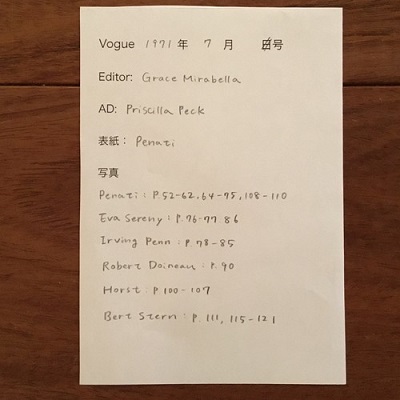 Vogue 1971年 7月 日号
Editor: Grace Mirabella
AD: Priscilla Peck
表紙: Penati
写真
Penati: P.52-62, 64-75, 108-110
Eva Sereny: P.76-77 86
Irving Penn: P.78-85
Robert Doineau: P.90
Horst: P 100-107
Bert Stern: P. 111, 115-121